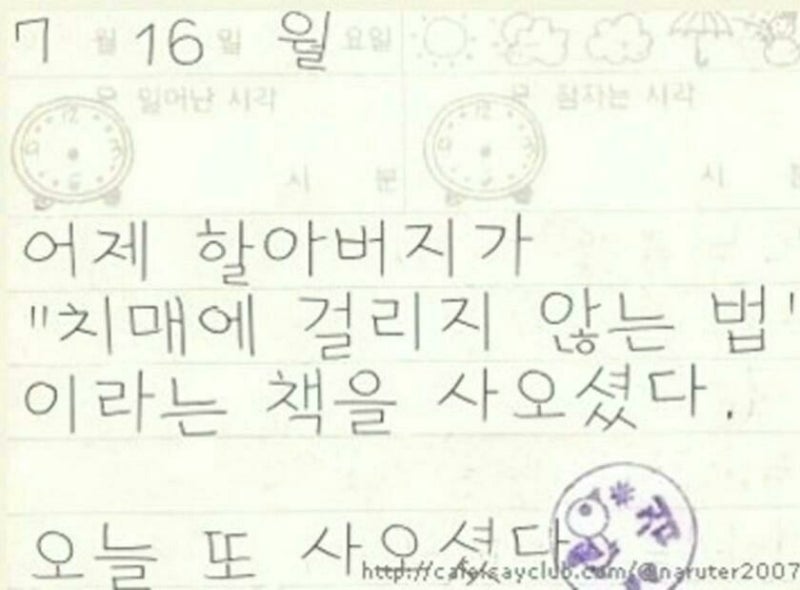 7 월 16 일 월 요일
일어난 시각 잠자는 시각
시 분 시 분
어제 할아버지가
"치매에 걸리지 않는 법"
이라는 책을 사오셨다.
오늘 또 사오셨다
http://cafe.sayclub.com/@naruter2007